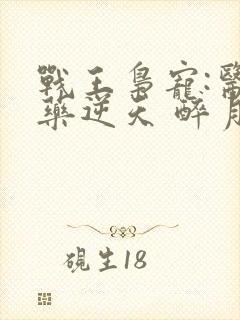 戰王梟寵:醫
藥逆天 醉月
硯生18